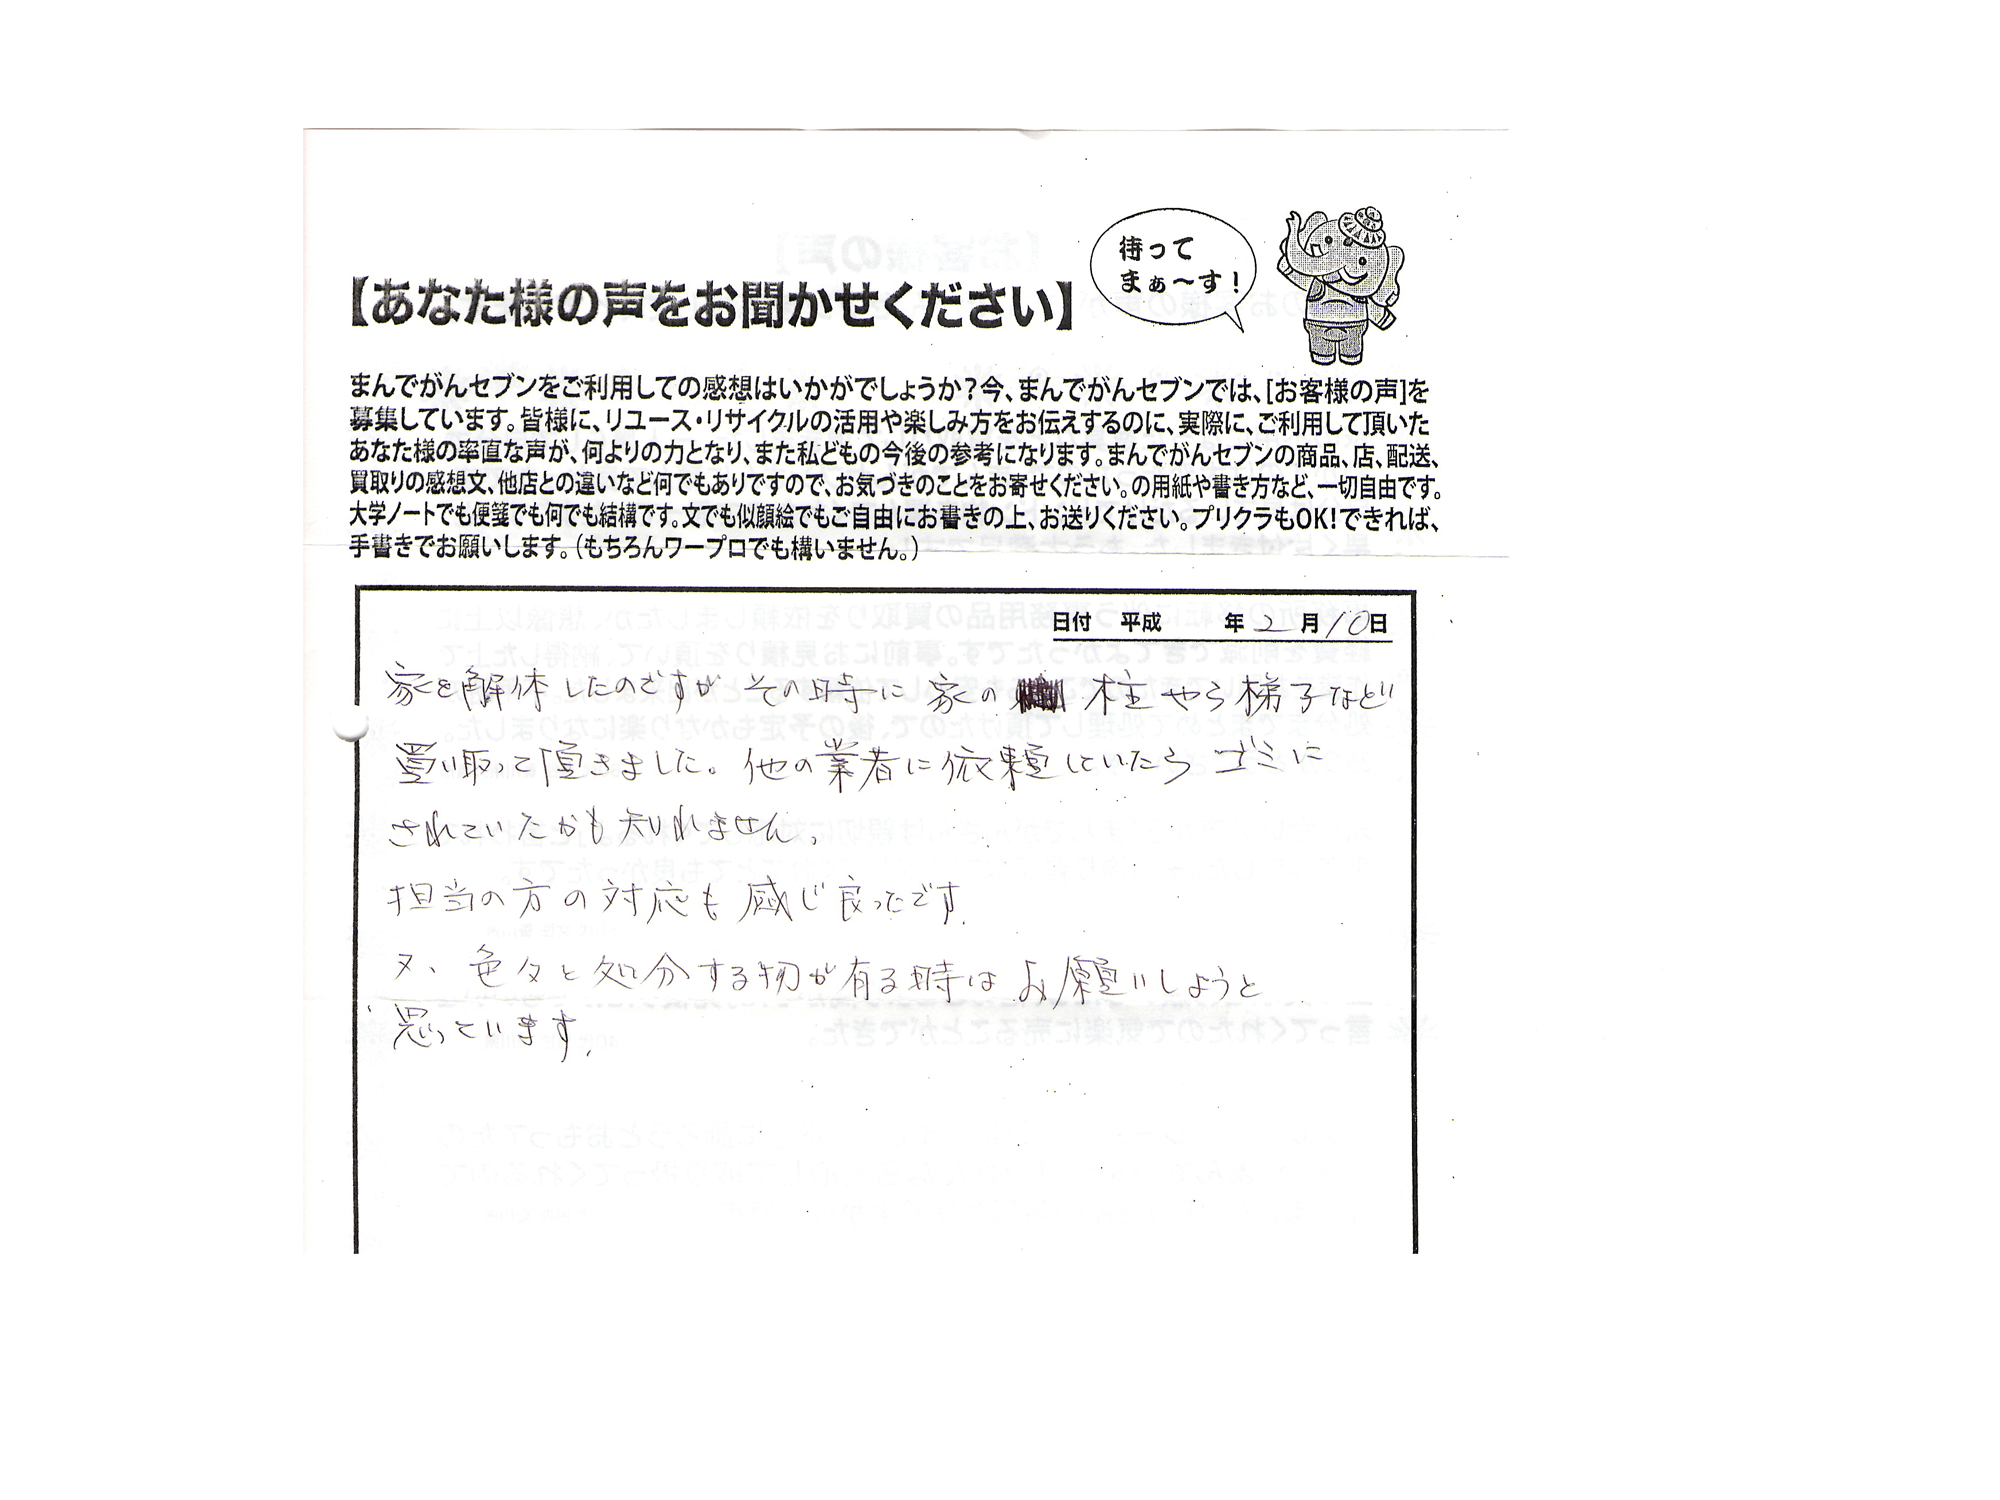 待って
まぁ～す！
【あなた様の声をお聞かせください】
まんでがんセブンをご利用しての感想はいかがでしょうか？今、まんでがんセブンでは、[お客様の声]を
募集しています。皆様に、リユース・リサイクルの活用や楽しみ方をお伝えするのに、実際に、ご利用して頂いた
あなた様の率直な声が、何よりの力となり、また私どもの今後の参考になります。まんでがんセブンの商品、店、配送、
買取りの感想文、他店との違いなど何でもありですので、お気づきのことをお寄せください。の用紙や書き方など、一切自由です。
大学ノートでも便箋でも何でも結構です。文でも似顔絵でもご自由にお書きの上、お送りください。プリクラもOK！できれば、
手書きでお願いします。（もちろんワープロでも構いません。）
日付　平成　　年 2 月 10 日
家を解体したのですが その時に 家の 柱やら梯子など
買い取って頂きました。他の業者に依頼していたら ゴミに
されていたかも知れません。
担当の方の対応も 感じ良ったです。
又、色々と処分する物が有る時は お願いしようと
思っています。